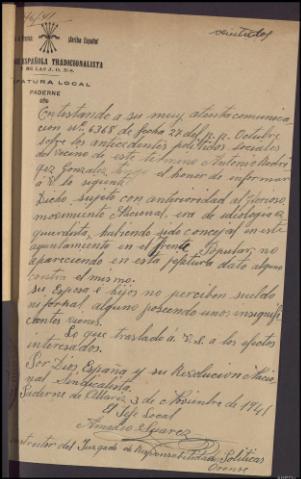 veintidos
¡Arriba España!
ESPAÑOLA TRADICIONALISTA
Y DE LAS J. O. N-S.
JEFATURA LOCAL
PADERNE
Contestando a su muy atenta comunica-
cion nº 6368 de fecha 27 del p. p. Octubre
sobre los antecedentes politicos sociales
del vecino de este termino Antonio Rodri
guez Gonzalez, tengo el honor de informar
á V. lo siguiente:
Dicho sujeto con anterioridad al Glorioso
movimiento Nacional, era de ideologia iz
quierdista, habiendo sido concejal en este
ayuntamiento en el frente Popular, no
apareciendo en esta jefatura dato alguno
contra el mismo.
su esposa é hijos no perciben sueldo
ni jornal alguno poseyendo unos insignifi
cantes bienes.
Lo que traslado á V. S. a los efectos
interesados.
Por Dios, España y su Revolucion Nacio
nal Sindicalista.
Paderne de Allariz 3 de Noviembre de 1941
El Jefe Local
Amadeo Suarez
Instructor del Juzgado de Responsabilidades Politicas
Orense